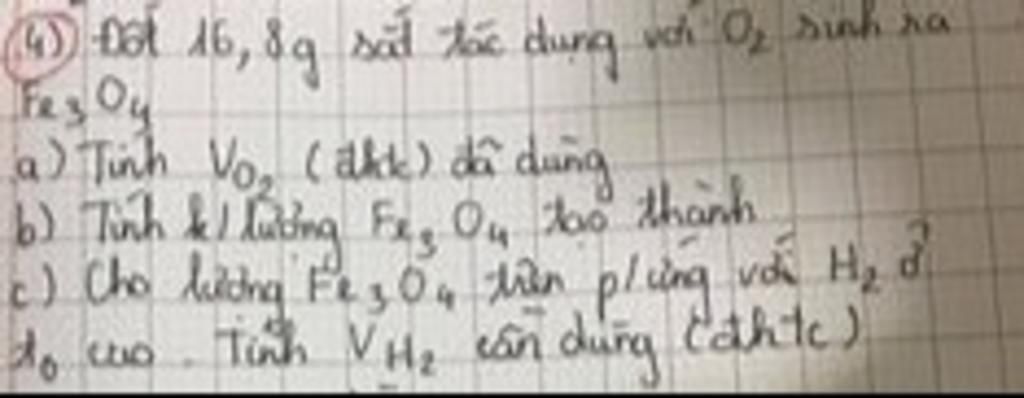 4) Đốt 16,8g sắt tác dụng với O₂ sinh ra
Fe₃O₄
a) Tính V_O₂ (đktc) đã dùng
b) Tính k/lượng Fe₃O₄ tạo thành
c) Cho lượng Fe₃O₄ trên p/ứng với H₂ ở
t₀ cao. Tính V_H₂ cần dùng (đktc)